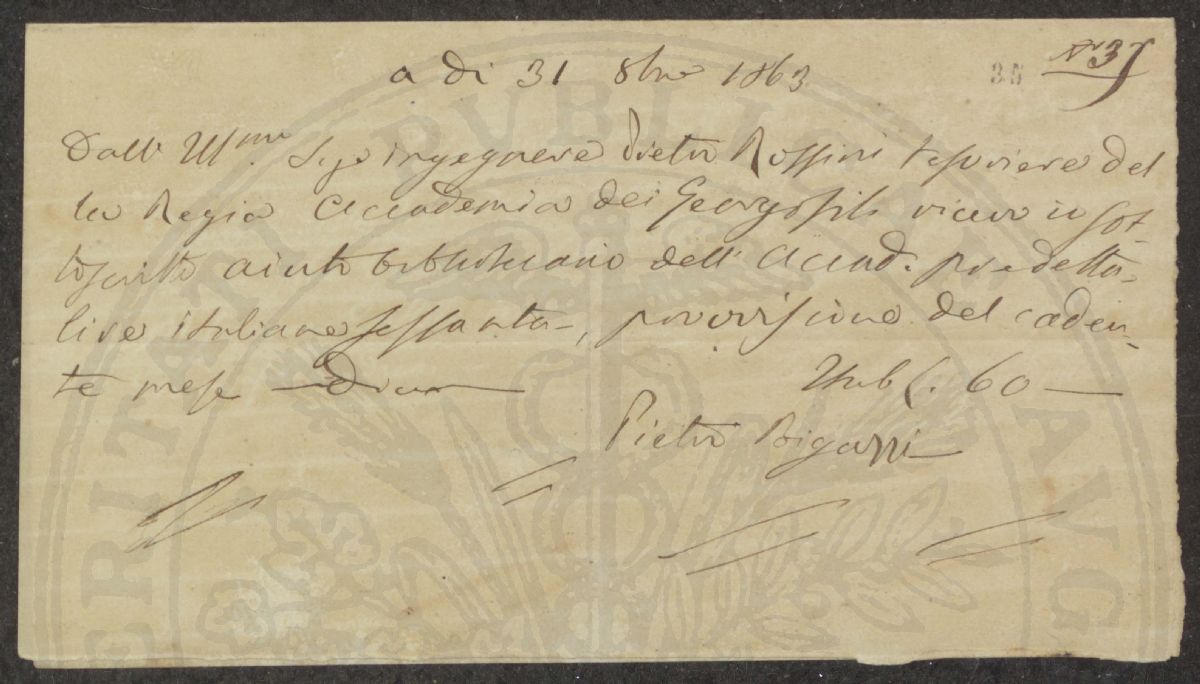 a di 31 8bre 1863
35
No 35
Dall' Illmo Sigr ingegnere Pietro Rossini tesoriere del
la Regia Accademia dei Georgofili ricevo io sot-
toscritto aiuto bibliotecario dell' Accad. predetta
lire italiane sessanta, provvisione del caden-
te mese — Dico —
Itab £. 60 —
Pietro Bigazzi
PUBLICAE